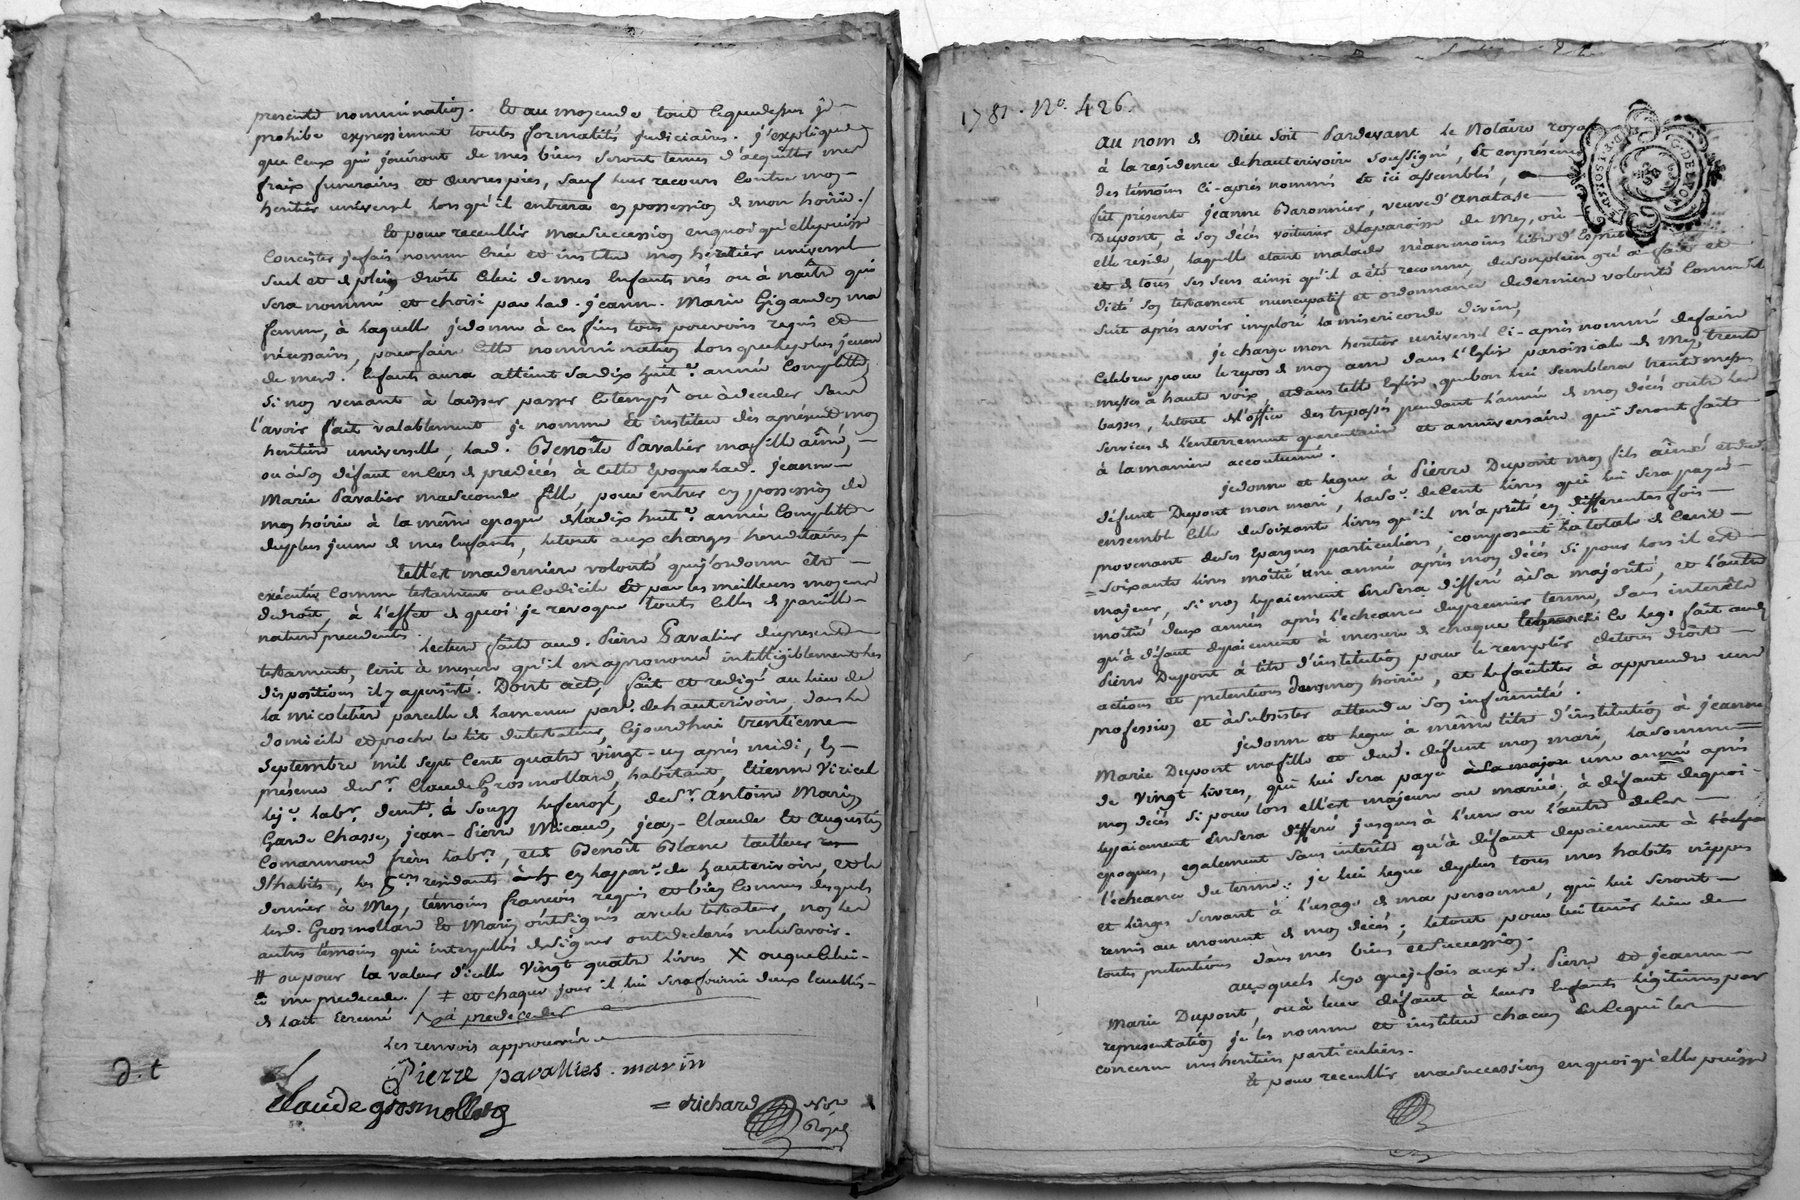 presente nommination. Et au moyende tout cequedessus je
prohibe expressement toutes formalités judiciaires. j'explique
que ceux qui jouiront de mes biens seront tenus d'acquitter mes
fraix funeraires et œuvres pies, sauf leur recours contre mon
heritier universel lorsqu'il entrera en possession de mon hoirie./
Et pour receullir masuccession enquoi qu'ellepuisse
consister jefais nomme crée et institue mon heretier universel
seul et de plein droit celui de mes enfants nés ou à naître qui
sera nommé et choisi par lad. jeanne. Marie Gigandon ma
femme, à laquelle jedonne à ces fins tous pouvoirs requis et
nécessaires, pourfaire cette nommination lorsquele plus jeune
de mesd. Enfants aura atteint sadix huit.e année complette
Si non venant à laisser passer letemps ou à deceder sans
l'avoir fait valablement je nomme et institue dès aprésent mon
heritiere universelle, lad. Benoîte Pavalier mafille aînée,
ou à son défaut encas de predécés à cette époque lad. jeanne
Marie Pavalier maseconde fille, pour entrer en possession de
mon hoirie à la même epoque de ladix huit.e année complette
duplus jeune de mes Enfants, letout aux charges hereditaires /
Tell'est maderniere volonté quej'ordonne être
exécutée comme testament ou codicile Et par les meilleurs moyens
dedroit, à l'effet de quoi je revoque toutes celles de pareille
nature precedentes.
Lecture faite aud. Pierre Pavalier dupresent
testament, Ecrit à mesure qu'il enaprononcé intelligiblement les
dispositions il y apersisté. Dont acte, fait et redigé au lieu de
la micoletiere parcelle de lamenue par.se dehauterivoire, dans le
domicile et proche le lit dutestateur, cejourdhui trentieme
Septembre mil sept Cent quatre vingt-un après midi, En
présence de s.r Claude Grosmollard, habitant, Etienne Viricel
lab.r demt. à Souzy, de s.r Antoine Marin
Garde Chasse, jean-Pierre Micaud, jean-Claude Et Augustin
Comarmond freres lab.rs, etd Benoît Blanc tailleur
d'habits, les residants en lapar.se de hauterivoire, et le
dernier à Mey, témoins francois requis et bien connus desquels
lesd. Grosmollard Et Marin ontsignés avecle testateur, non les
autres témoins qui interpellés designer ontdeclarés nelesavoir.
# oupour la valeur d'icelle vingt quatre livres X ouquecelui-
ci me predecede. / ‡ et chaque jour il lui serafourni deux
de lait Ecremé à predéceder
les renvois approuvés
d.t
Pierre pavallies . marin
Claude grosmollard
= Richard No.re
Royal
1781. No. 426.
Au nom de Dieu soit Pardevant le Notaire royal
à la résidence de hauterivoire soussigné, Et enprésence
des témoins ci-aprés nommés et ici assemblés,
fut présente jeanne Baronnier, veuve d'anatase
Dupont, à son décès voiturier delaparoisse de Mey, où
elle reside, laquelle etant malade néanmoins libre d'esprit
et de tous ses sens ainsi qu'il a été reconnu, desonplein gré a fait et
dicté son testament nuncupatif et ordonnance dederniere volonté comme
suit aprés avoir imploré la misericorde divine,
je charge mon heritier universel ci-après nommé defaire
celebrer pour le repos de mon ame dans l'Eglise paroissiale de Mey, trente
messes à haute voix, et danstelle Eglise quebon lui semblera trente messes
basses, letout de l'office des trepassés pendant l'année de mon décés outre les
services de l'enterrement quarentaine et anniversaire qui seront faits
à la maniere accoutumée.
jedonne et legue à Pierre Dupont mon fils aîné et dud.
défunt Dupont mon mari, laso.e decent livres qui lui sera payée
ensemble celle desoixante livres qu'il m'a prêté en differentes fois
provenant deses épargnes particulieres, composant la totale de cent
= soixante livres moitié une année aprés mon décés si pour lors il est
majeur, si non lepaiement Ensera differé àsa majorité, et l'autre
moitié deux années aprés l'echeance dupremier terme, sans interêts
qu'à défaut depaiement à mesure de chaque ce legs fait aud.
Pierre Dupont à titre d'institution pour le remplir detous droits
actions et pretentions dansmon hoirie, et lefaciliter à apprendre une
profession et àsubsister attendu son infirmité.
jedonne et legue à même titre d'institution à jeanne
Marie Dupont mafille et dud. défunt mon mari, lasomme
de vingt livres, qui lui sera payée une année aprés
mon décés si pour lors ell'est majeure ou mariée, à défaut dequoi
lepaiement Ensera differé jusques à l'une ou l'autre deces
epoques, egalement sans interêts qu'à défaut depaiement à
l'échéance du terme: je lui legue deplus tous mes habits nippes
et linges servant à l'usage de ma personne, qui lui seront
remis au moment de mon décés; letout pour lui tenir lieu de
toutes pretentions dans mes biens etsuccession.
auxquels legs quejefais auxd. Pierre et jeanne
Marie Dupont, ou à leur défaut à leurs Enfants légitimes par
representation je les nomme et institue chacun En cequi les
concerne mes heritiers particuliers.
Et pour recullir masuccession enquoi qu'elle puisse